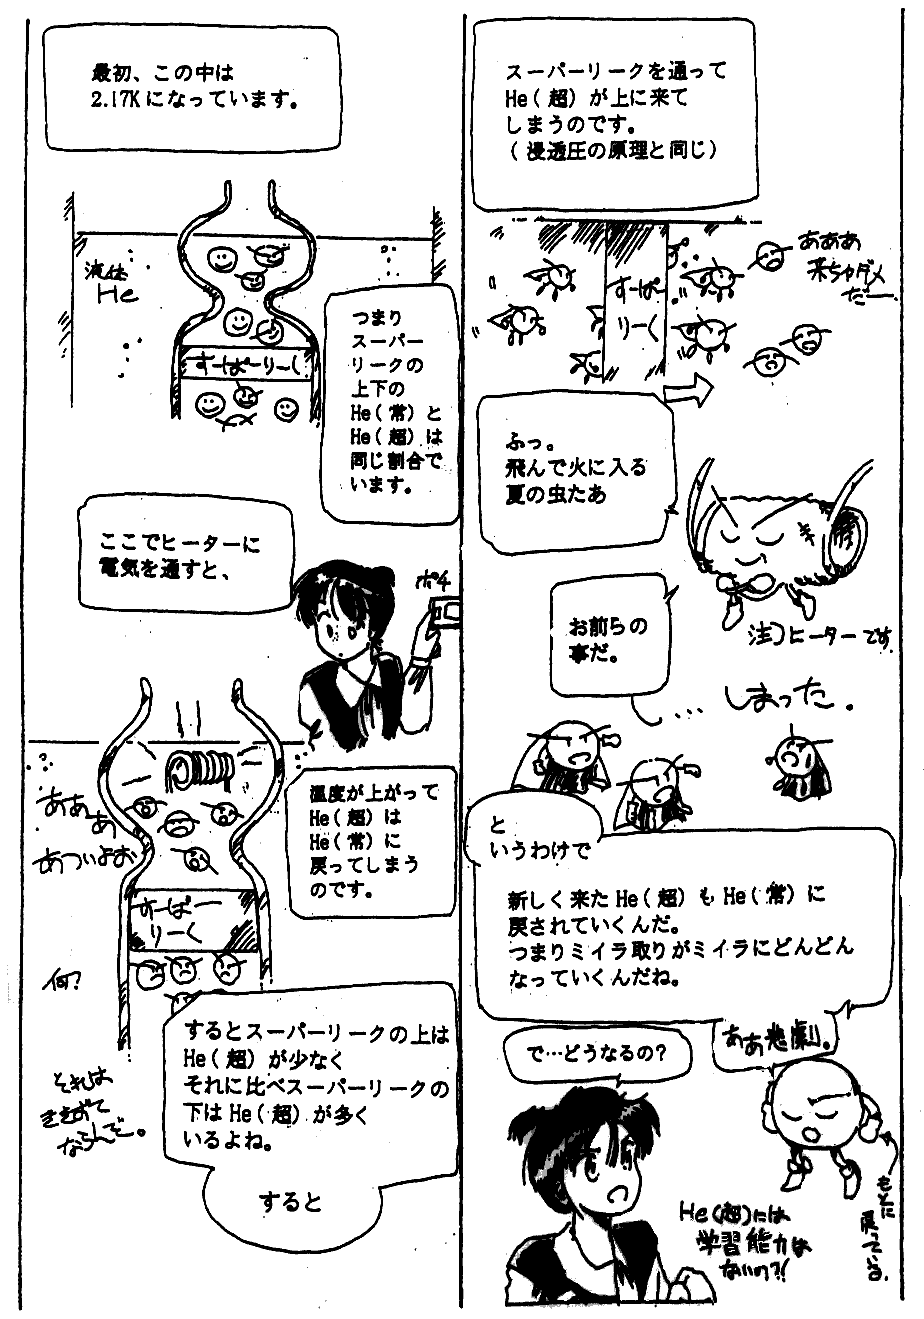 最初、この中は
2.17Kになっています。
液体
He
すーぱーりーく
つまり
スーパー
リークの
上下の
He(常)と
He(超)は
同じ割合で
います。
ここでヒーターに
電気を通すと、
ポチ
温度が上がって
He(超)は
He(常)に
戻ってしまう
のです。
ああ
あ
あついよお
すーぱー
りーく
何?
するとスーパーリークの上は
He(超)が少なく
それに比べスーパーリークの
下はHe(超)が多く
いるよね。
それは
ききずて
ならんぞ。
すると
スーパーリークを通って
He(超)が上に来て
しまうのです。
(浸透圧の原理と同じ)
すーぱー
りーく
あああ
来ちゃダメ
だー
ふっ。
飛んで火に入る
夏の虫たあ
注)ヒーターです
お前らの
事だ。
…しまった。
と
いうわけで
新しく来たHe(超)もHe(常)に
戻されていくんだ。
つまりミイラ取りがミイラにどんどん
なっていくんだね。
ああ悲劇。
で…どうなるの?
もとに
戻っている。
He(超)には
学習能力は
ないの?!